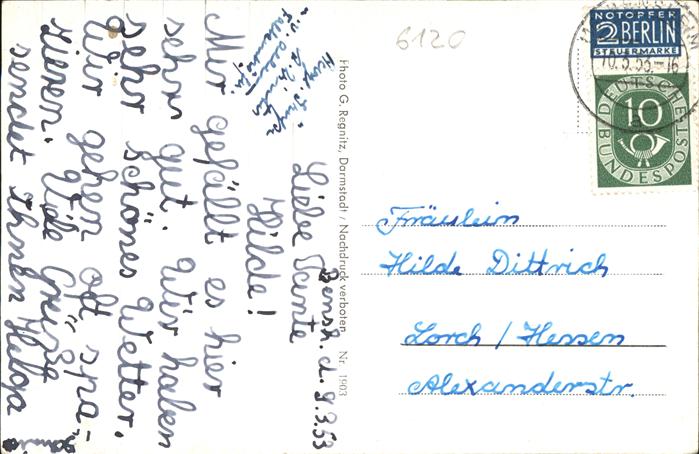 Bensh. d. 9.3.53
Liebe Tante
Hilde!
Mir gefällt es hier
sehr gut. Wir haben
sehr schönes Wetter.
Wir gehen oft spa-
zieren. Viele Grüße
sendet Ihnen Helga
6120
Photo G. Regnitz, Darmstadt / Nachdruck verboten Nr. 1903
NOTOPFER
2 BERLIN
STEUERMARKE
10
DEUTSCHE
BUNDESPOST
Fräulein
Hilde Dittrich
Lorch / Hessen
Alexanderstr.